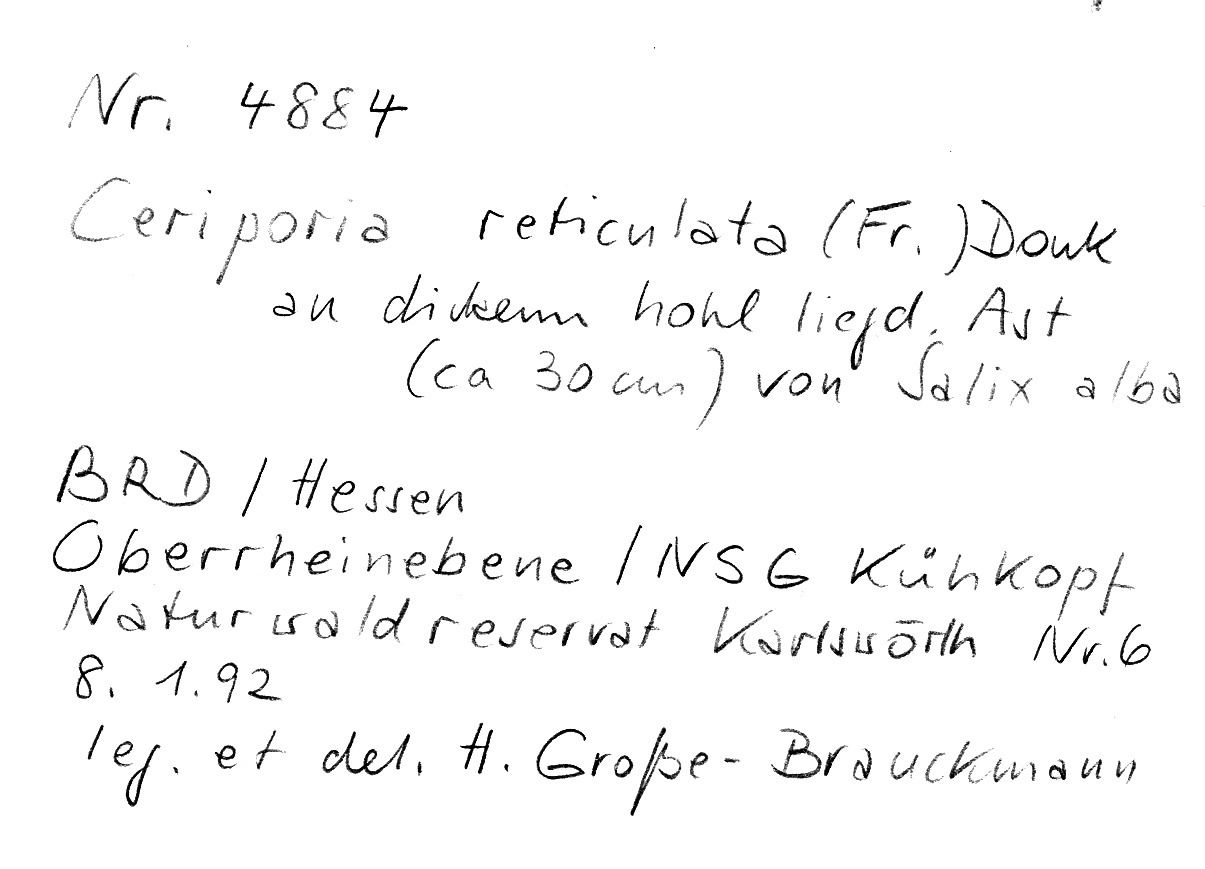 Nr. 4884
Ceriporia reticulata (Fr.) Donk
an dickem hohl liegd. Ast
(ca 30 cm) von Salix alba
BRD / Hessen
Oberrheinebene / NSG Kühkopf
Naturwaldreservat Karlswörth Nr. 6
8. 1. 92
leg. et det. H. Große-Brauckmann